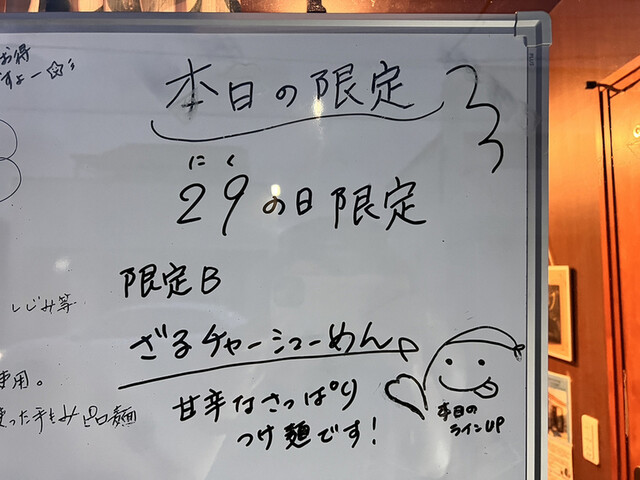 お得
ですよー☆
本日の限定
にく
29の日限定
限定B
しじみ等
ざるチャーシューめん
使用。
甘辛なさっぱり
つけ麺です!
本日の
ラインUP